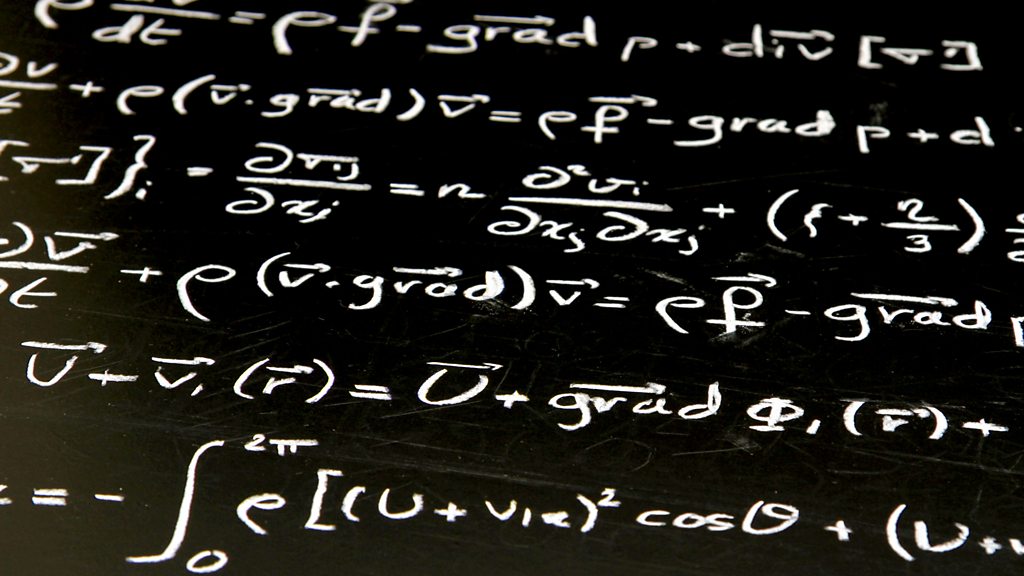 ρ dv⃗/dt = ρ f⃗ - grad⃗ p + div⃗ [σ']
∂v/t + ρ (v⃗. grad⃗) v⃗ = ρ f⃗ - grad p + d
[σ']}ᵢ = ∂σᵢⱼ/∂xⱼ = η ∂²vᵢ/∂xⱼ∂xⱼ + (ξ + η/3)
∂v⃗/∂t + ρ (v⃗. grad⃗) v⃗ = ρ f⃗ - grad⃗
U⃗ + v⃗₁ (r⃗) = U⃗ + grad⃗ Φ₁ (r⃗) +
= - ∫₀^2π ρ [(U + v₁ₓ)² cosθ + (U +